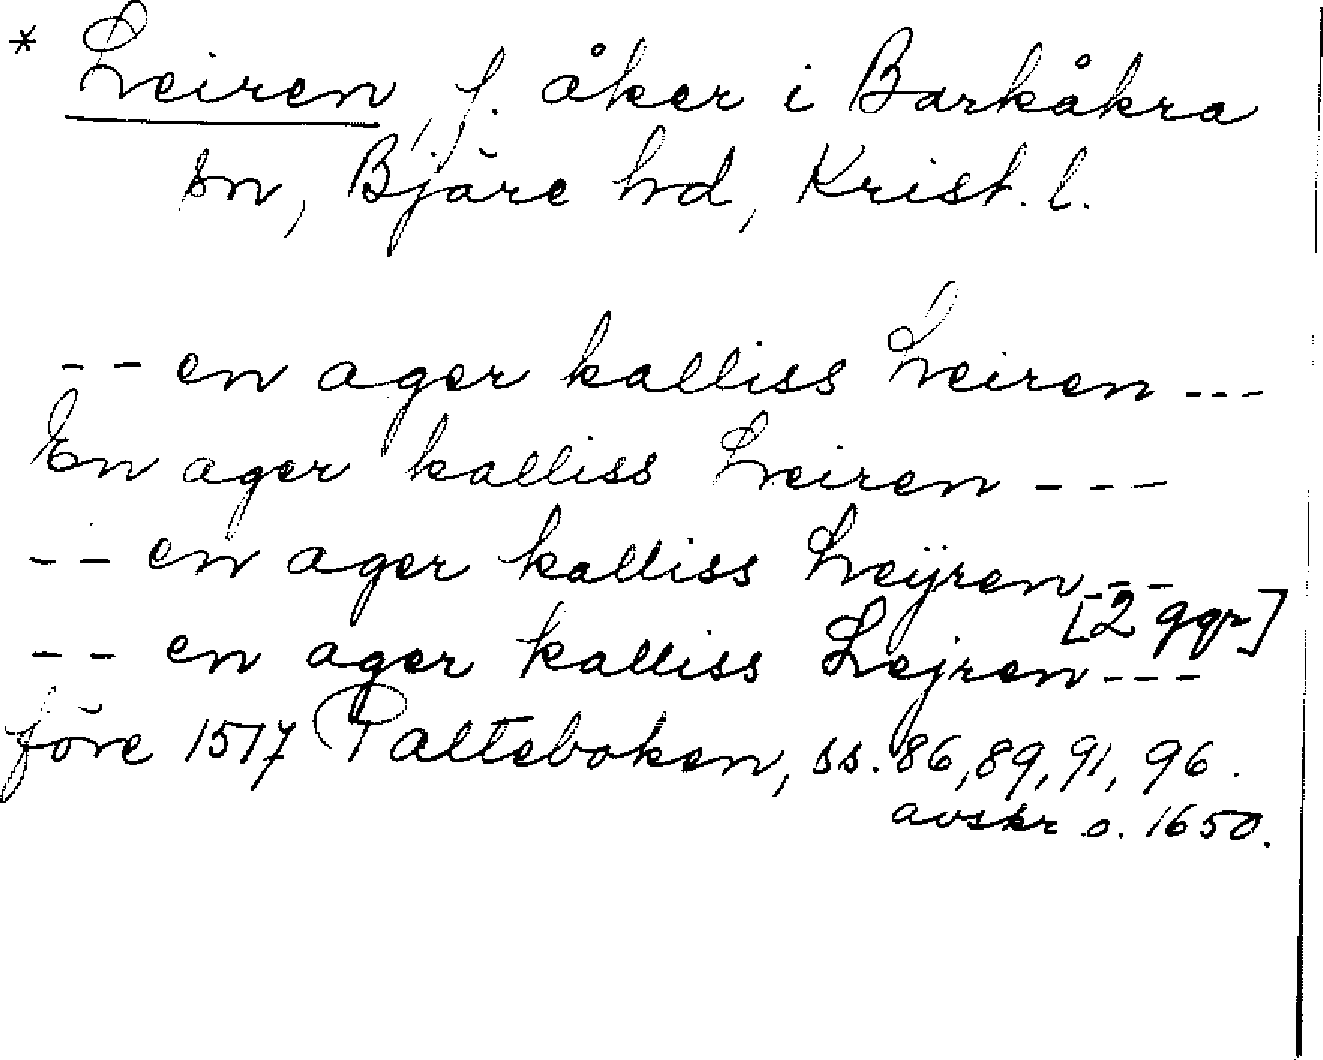 * Leiren, f. åker i Barkåkra
sn, Bjäre hd, Krist. l.
-- en ager kalliss Leiren ---
En ager kalliss Leiren ---
-- en ager kalliss Leÿren ---
[2 ggr]
-- en ager kalliss Lejren ---
före 1517 Palteboken, ss. 86, 89, 91, 96.
avskr o. 1650.